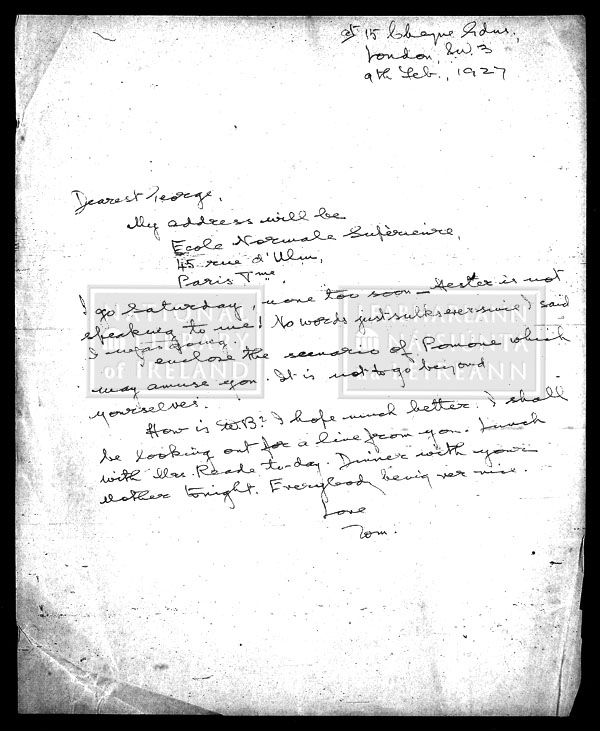 at 15 Cheyne Gdns.,
London, S.W. 3
9th Feb., 1927
Dearest George,
My address will be
Ecole Normale Supérieure,
45 rue d'Ulm,
Paris Vme.
I go Saturday, none too soon — Hester is not
speaking to me! No words just sulks ever since I said
I was going.
I enclose the scenario of Pomone which
may amuse you. It is not to go beyond
yourselves.
How is W.B? I hope much better. I shall
be looking out for a line from you. Lunch
with Mrs. Reade to-day. Dinner with your
Mother tonight. Everybody being ver nice.
Love
Tom.
NATIONAL LIBRARY of IRELAND
LEABHARLANN NÁISIÚNTA na hÉIREANN